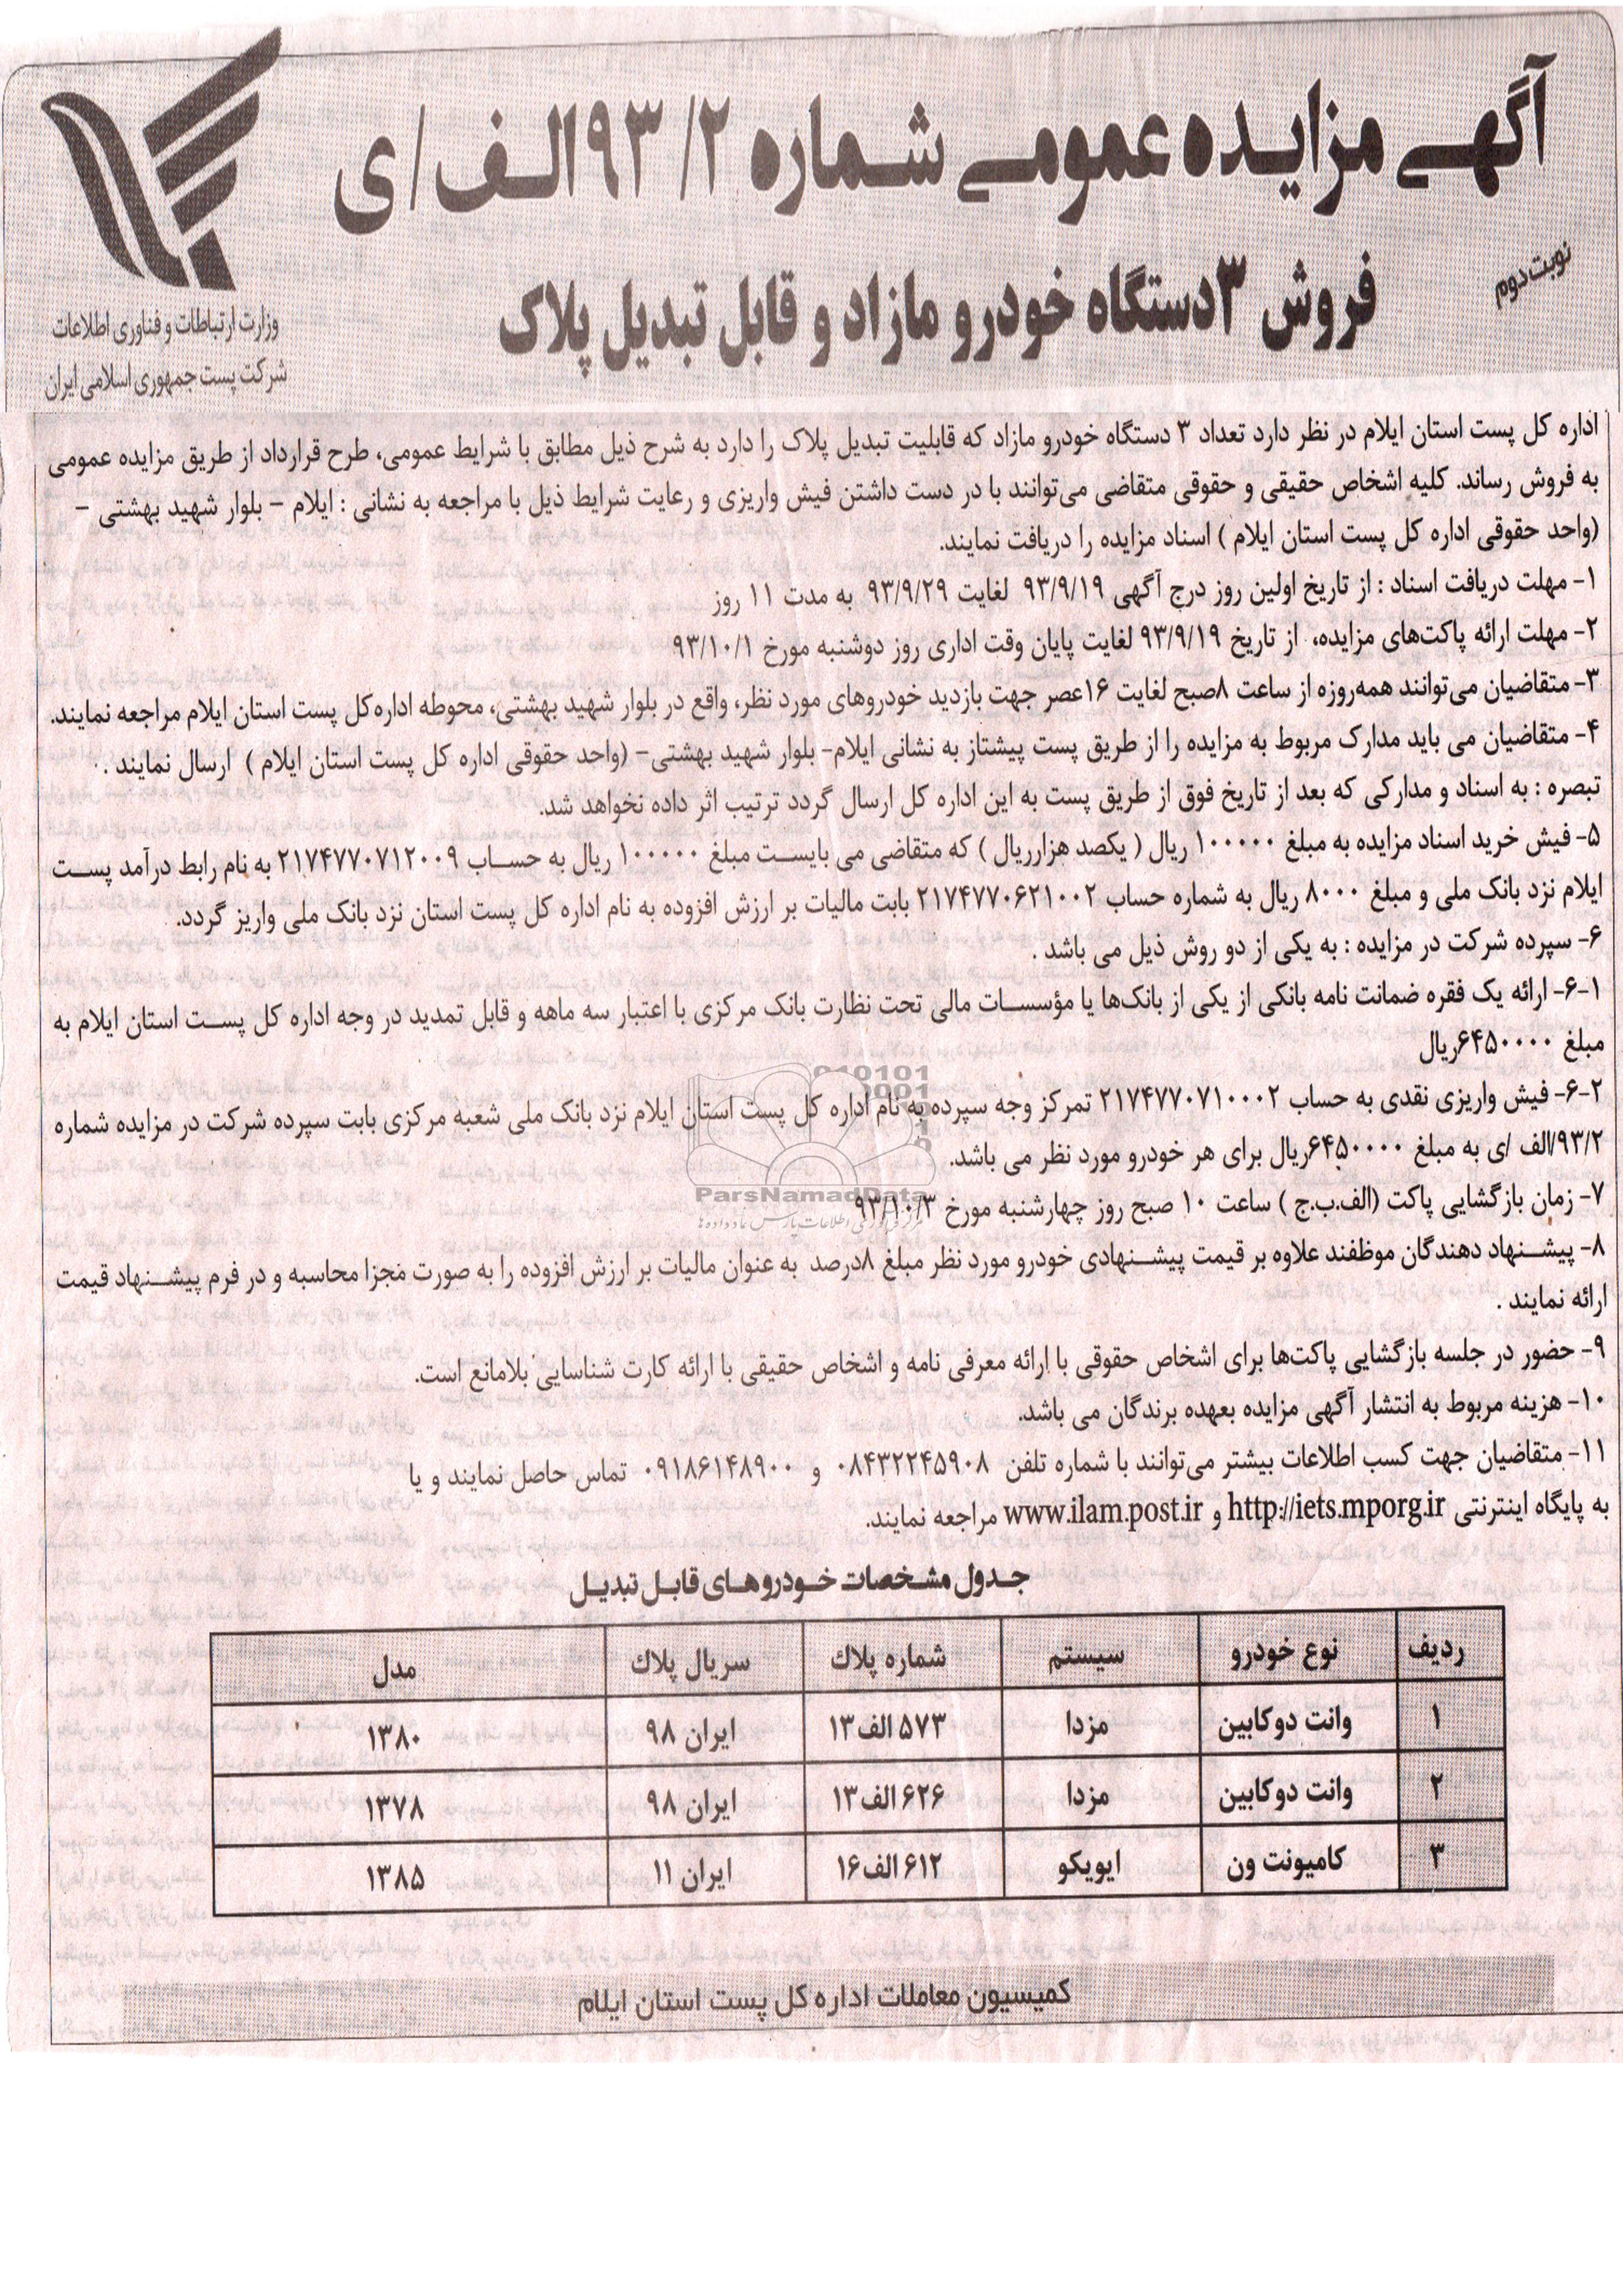 آگهی مزایده عمومی شماره ۹۳/۲الف/ی
نوبت دوم
فروش ۳دستگاه خودرو مازاد و قابل تبدیل پلاک
وزارت ارتباطات و فناوری اطلاعات
شرکت پست جمهوری اسلامی ایران
اداره کل پست استان ایلام در نظر دارد تعداد ۳ دستگاه خودرو مازاد که قابلیت تبدیل پلاک را دارد به شرح ذیل مطابق با شرایط عمومی، طرح قرارداد از طریق مزایده عمومی
به فروش رساند. کلیه اشخاص حقیقی و حقوقی متقاضی می‌توانند با در دست داشتن فیش واریزی و رعایت شرایط ذیل با مراجعه به نشانی : ایلام – بلوار شهید بهشتی –
(واحد حقوقی اداره کل پست استان ایلام ) اسناد مزایده را دریافت نمایند.
۱- مهلت دریافت اسناد : از تاریخ اولین روز درج آگهی ۹۳/۹/۱۹ لغایت ۹۳/۹/۲۹ به مدت ۱۱ روز
۲- مهلت ارائه پاکت‌های مزایده، از تاریخ ۹۳/۹/۱۹ لغایت پایان وقت اداری روز دوشنبه مورخ ۹۳/۱۰/۱
۳- متقاضیان می‌توانند همه‌روزه از ساعت ۸صبح لغایت ۱۶عصر جهت بازدید خودروهای مورد نظر، واقع در بلوار شهید بهشتی، محوطه اداره‌کل پست استان ایلام مراجعه نمایند.
۴- متقاضیان می باید مدارک مربوط به مزایده را از طریق پست پیشتاز به نشانی ایلام- بلوار شهید بهشتی- (واحد حقوقی اداره کل پست استان ایلام ) ارسال نمایند .
تبصره : به اسناد و مدارکی که بعد از تاریخ فوق از طریق پست به این اداره کل ارسال گردد ترتیب اثر داده نخواهد شد.
۵- فیش خرید اسناد مزایده به مبلغ ۱۰۰۰۰۰ ریال ( یکصد هزارریال ) که متقاضی می بایست مبلغ ۱۰۰۰۰۰ ریال به حساب ۲۱۷۴۷۷۰۷۱۲۰۰۹ به نام رابط درآمد پست
ایلام نزد بانک ملی و مبلغ ۸۰۰۰ ریال به شماره حساب ۲۱۷۴۷۷۰۶۲۱۰۰۲ بابت مالیات بر ارزش افزوده به نام اداره کل پست استان نزد بانک ملی واریز گردد.
۶- سپرده شرکت در مزایده : به یکی از دو روش ذیل می باشد .
۶-۱- ارائه یک فقره ضمانت نامه بانکی از یکی از بانک‌ها یا مؤسسات مالی تحت نظارت بانک مرکزی با اعتبار سه ماهه و قابل تمدید در وجه اداره کل پست استان ایلام به
مبلغ ۶۴۵۰۰۰۰ریال
۶-۲- فیش واریزی نقدی به حساب ۲۱۷۴۷۷۰۷۱۰۰۰۲ تمرکز وجه سپرده به نام اداره کل پست استان ایلام نزد بانک ملی شعبه مرکزی بابت سپرده شرکت در مزایده شماره
۹۳/۲/الف /ی به مبلغ ۶۴۵۰۰۰۰ریال برای هر خودرو مورد نظر می باشد.
ParsNamadData
۷- زمان بازگشایی پاکت (الف.ب.ج ) ساعت ۱۰ صبح روز چهارشنبه مورخ ۹۳/۱۰/۳
۸- پیشنهاد دهندگان موظفند علاوه بر قیمت پیشنهادی خودرو مورد نظر مبلغ ۸درصد به عنوان مالیات بر ارزش افزوده را به صورت مجزا محاسبه و در فرم پیشنهاد قیمت
ارائه نمایند .
۹- حضور در جلسه بازگشایی پاکت‌ها برای اشخاص حقوقی با ارائه معرفی نامه و اشخاص حقیقی با ارائه کارت شناسایی بلامانع است.
۱۰- هزینه مربوط به انتشار آگهی مزایده بعهده برندگان می باشد.
۱۱- متقاضیان جهت کسب اطلاعات بیشتر می‌توانند با شماره تلفن ۰۸۴۳۲۲۴۵۹۰۸ و ۰۹۱۸۶۱۴۸۹۰۰ تماس حاصل نمایند و یا
به پایگاه اینترنتی http://iets.mporg.ir و www.ilam.post.ir مراجعه نمایند.
جدول مشخصات خودروهای قابل تبدیل
ردیف نوع خودرو سیستم شماره پلاك سریال پلاك مدل
۱ وانت دوکابین مزدا ۵۷۳ الف۱۳ ایران ۹۸ ۱۳۸۰
۲ وانت دوکابین مزدا ۶۲۶ الف۱۳ ایران ۹۸ ۱۳۷۸
۳ کامیونت ون ایویکو ۶۱۲ الف۱۶ ایران ۱۱ ۱۳۸۵
کمیسیون معاملات اداره کل پست استان ایلام